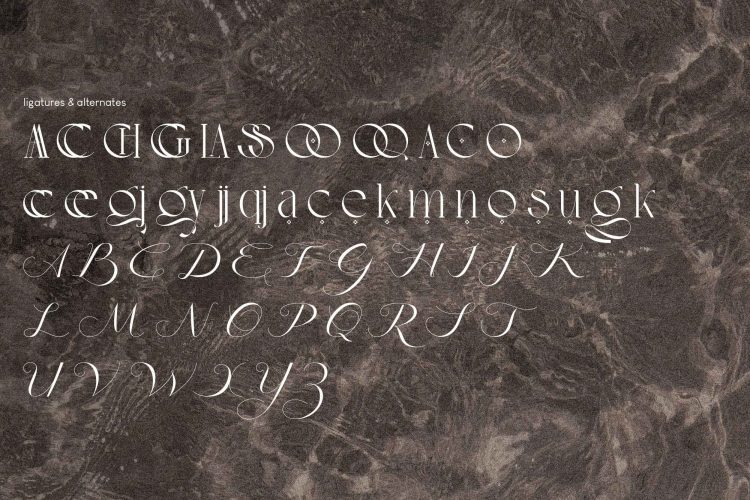 ligatures & alternates
A C H G LA SS OO OQ A C O
cc ce gj gy jj qj a c e k m n o s u g k
A B C D E F G H I J K
L M N O P Q R S T
U V W X Y Z